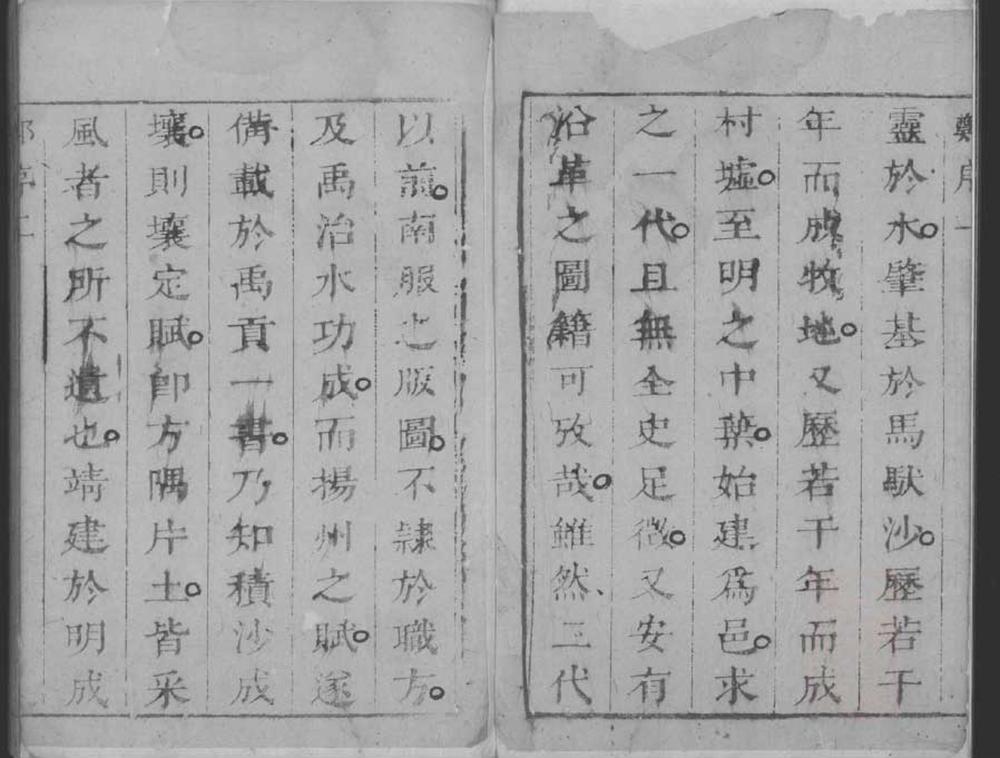 鄭序一
靈於水。肇基於馬馱沙。歷若干
年而成牧地。又歷若干年而成
村墟。至明之中葉。始建爲邑。求
之一代。且無全史足徵。又安有
沿革之圖籍可攷哉。雖然、三代
以前。南服之版圖。不隷於職方。
及禹治水功成。而揚州之賦。遂
備載於禹貢一書。乃知積沙成
壤。則壤定賦。卽方隅片土。皆采
風者之所不遺也。靖建於明成